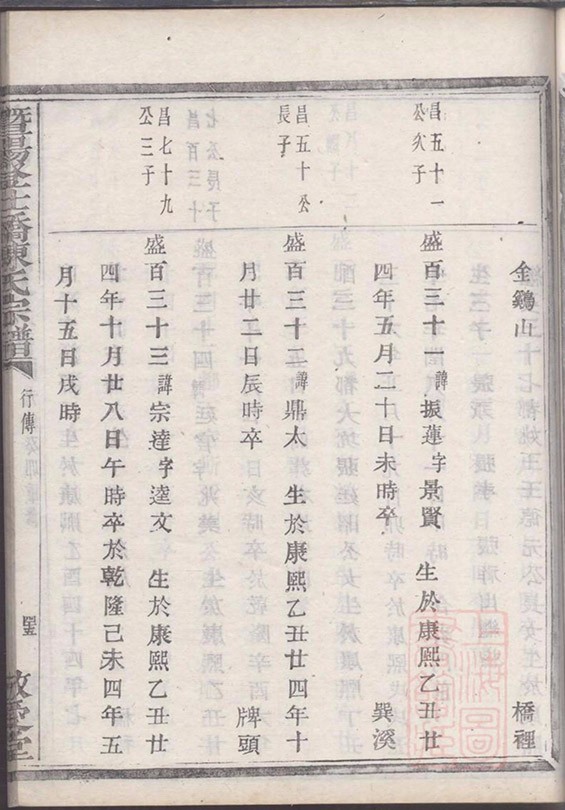 金鷄山 橋裡
昌五十一
公次子
盛百三十一諱振蓮字景賢 生於康熙乙丑廿
四年五月二十日未時卒 巽溪
昌五十公
長子
盛百三十二諱鼎太 生於康熙乙丑廿四年十
月廿二日辰時卒 牌頭
昌七十九
公三子
盛百三十三諱宗達字逵文 生於康熙乙丑廿
四年十月廿八日午時卒於乾隆己未四年五
月十五日戌時
暨陽 陳氏宗譜 行傳